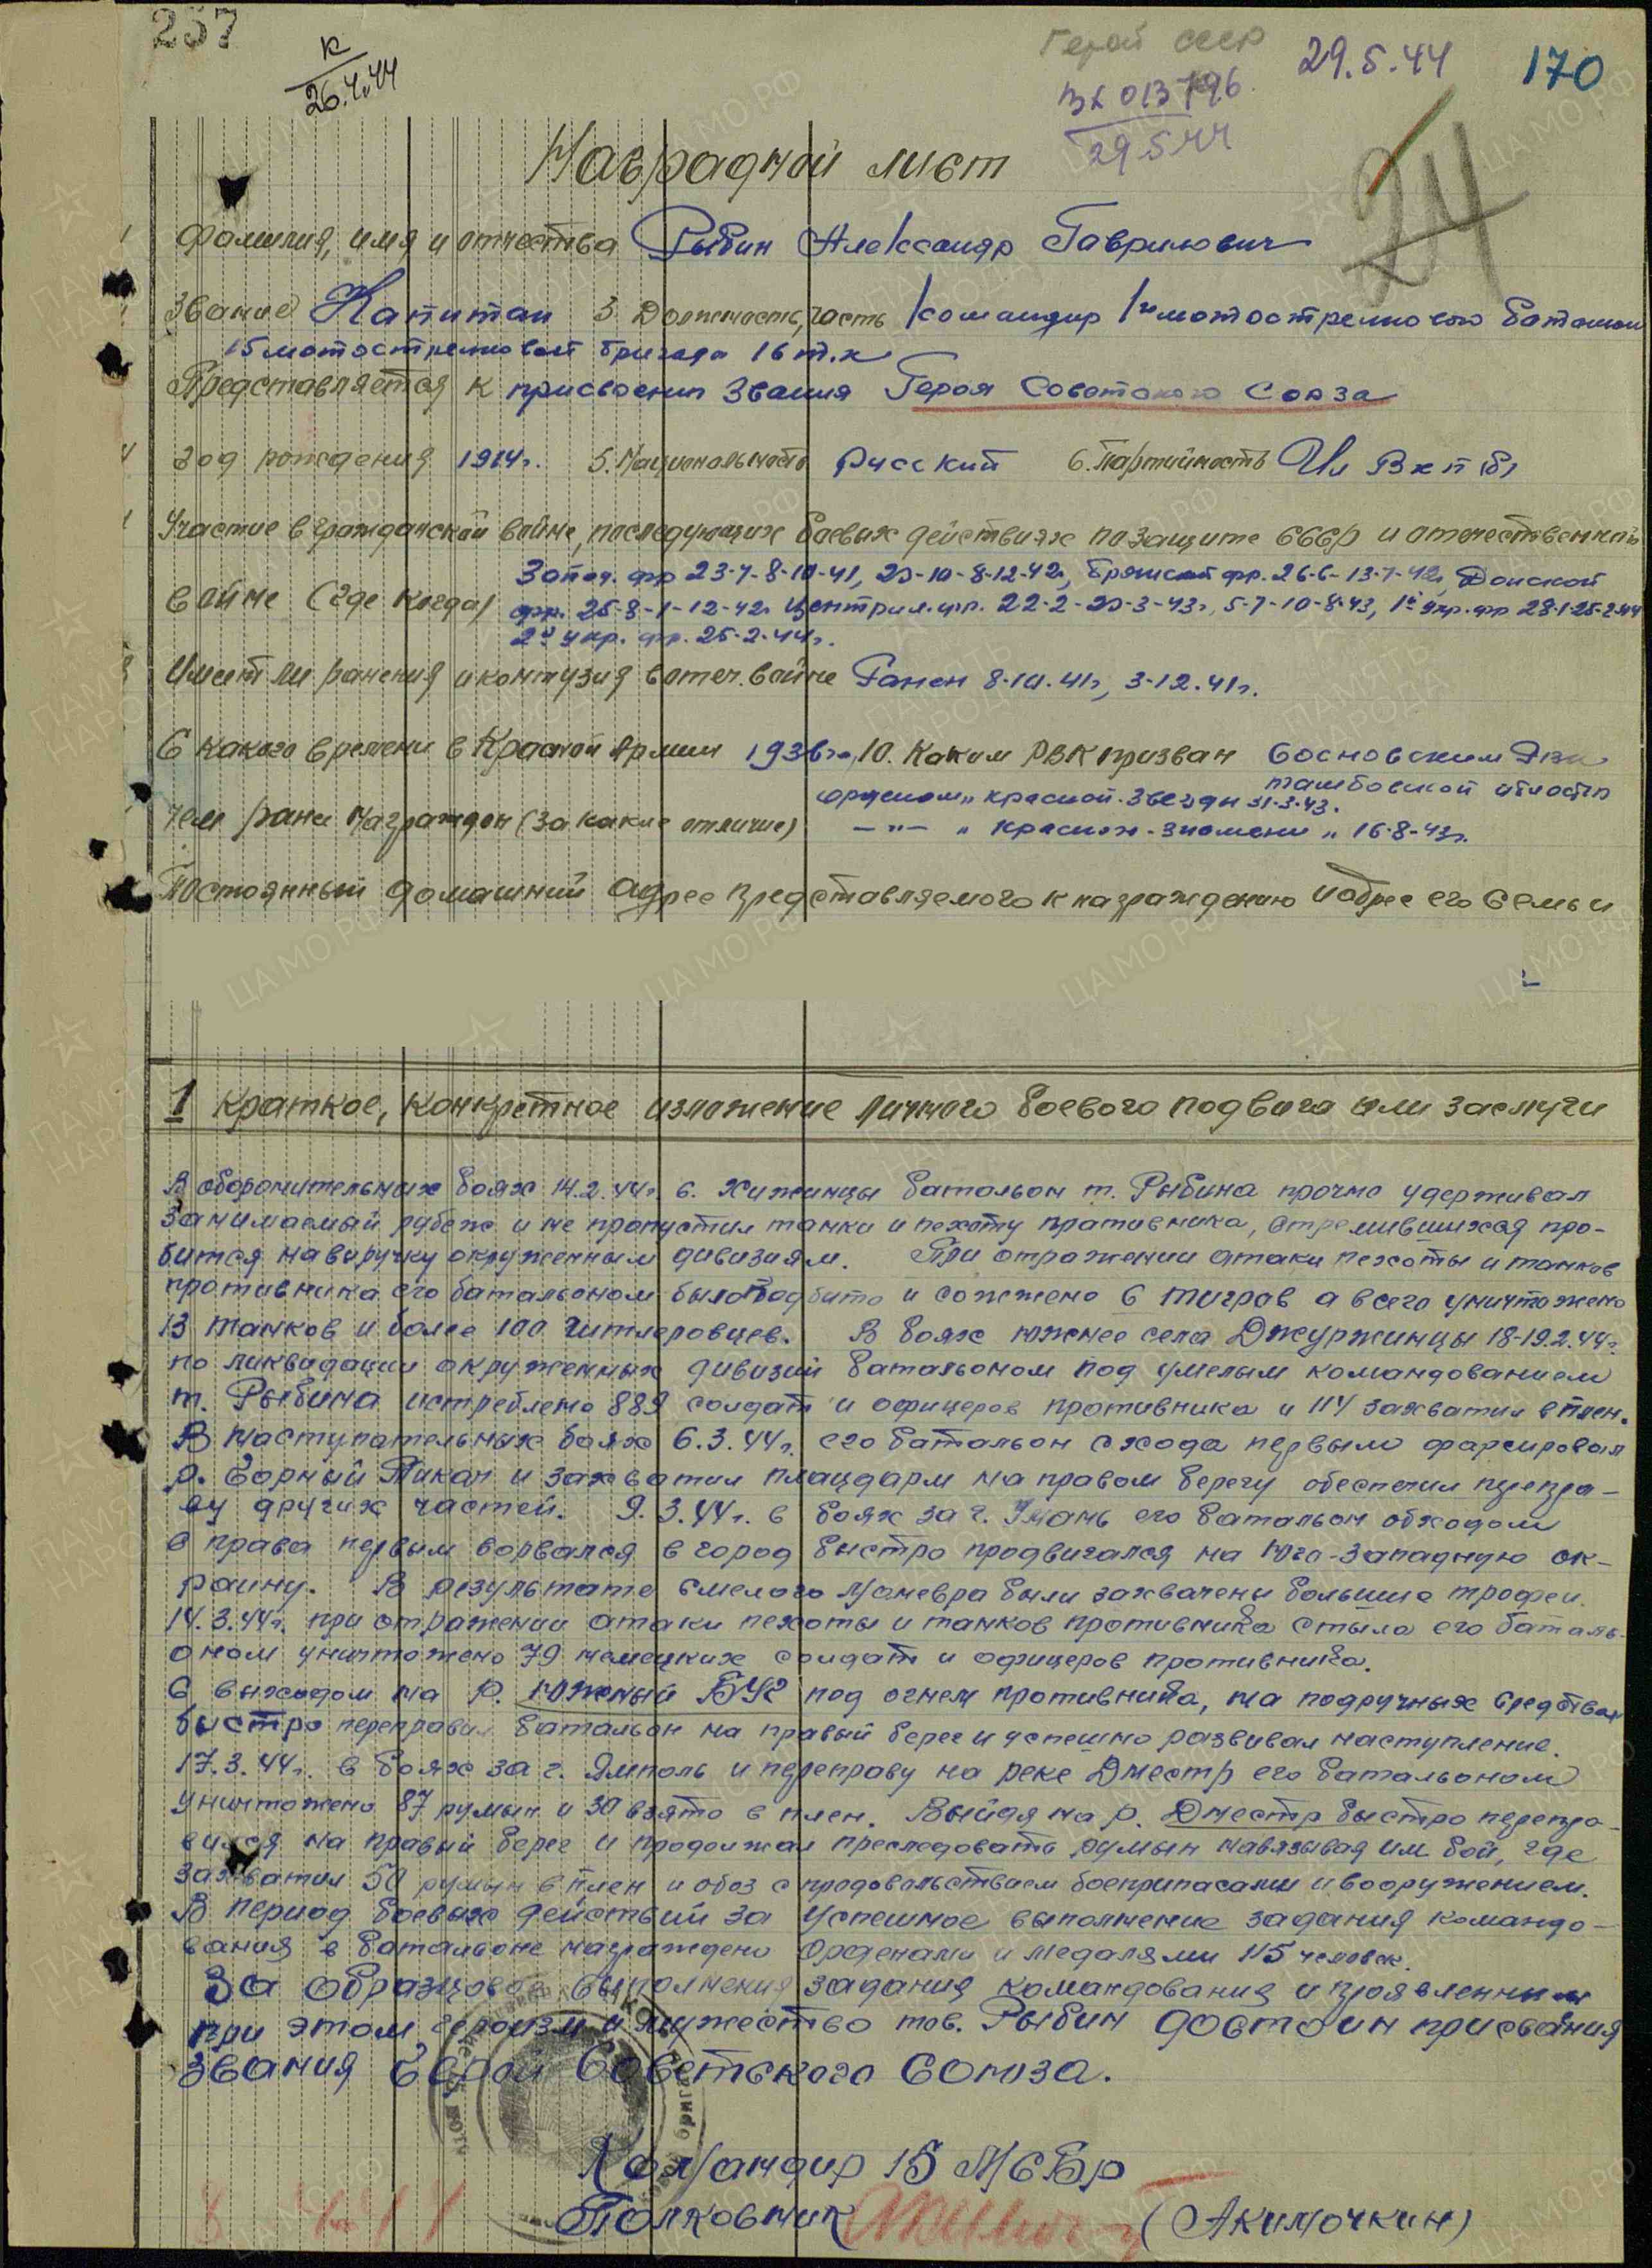 257
К
26.4.44
Герой СССР
29.5.44
170
ВХ 013796
29.5.44
24
Наградной лист
Фамилия, имя и отчества Рыбин Александр Гаврилович
Звание Капитан 3. Должность, часть Командир 1го мотострелкового баталиона
15 мотострелковой бригады 16 т.к
Представляется к присвоению Звания Героя Советского Союза
Год рождения 1914г. 5. Национальность Русский 6. Партийность Чл ВКП(б)
Участие в гражданской войне, последующих боевых действиях по защите СССР и отечественной
Запад. фр 23-7-8-10-41, 20-10-8-12-42г, Брянский фр. 26-6-13-7-42г, Донской
войне (где когда) фр. 25-8-1-12-42г Централ. фр. 22-2-23-3-43г, 5-7-10-8-43, 1й Укр. фр 28-1-25-2-44
2й укр. фр. 25-2-44г.
Имеет ли ранения и контузия в отеч. войне Ранен 8-10.41г, 3-12.41г.
С какого времени в Красной Армии 1936г. 10. Каким РВК призван Сосновским Рвк
Тамбовской области
орденом „Красной-Звезды 31.3.43.
чем ранее награжден (за какие отличие) — „ — „Красное-Знамени„ 16-8-43г.
Постоянный домашний адрес представляемого к награждению и адрес его семьи
1 Краткое, конкретное изложение личного боевого подвига или заслуги
В оборонительных боях 14.2.44г. с. Хижинцы батальон т. Рыбина прочно удерживал
занимаемый рубеж и не пропустил танки и пехоту противника, стремившихся про-
бится на выручку окруженным дивизиям. При отражении атаки пехоты и танков
противника его батальоном было подбито и сожжено 6 тигров а всего уничтожено
13 танков и более 100 гитлеровцев. В боях южнее села Джуржинцы 18-19.2.44г.
по ликвидации окруженных дивизий батальоном под умелым командованием
т. Рыбина истреблено 889 солдат и офицеров противника и 114 захватил в плен.
В наступательных боях 6.3.44г. его батальон с хода первым форсировал
р. Горный Тикач и захватил плацдарм на правом берегу обеспечил перепра-
ву других частей. 9.3.44г. в боях за г. Умань его батальон обходом
с права первым ворвался в город быстро продвигался на юго-западную ок-
раину. В результате смелого маневра были захвачены большие трофеи.
14.3.44г. при отражении атаки пехоты и танков противника с тыла его баталь-
оном уничтожено 79 немецких солдат и офицеров противника.
С выходом на р. южный БУГ под огнем противника, на подручных средствах
быстро переправил батальон на правый берег и успешно развивал наступление.
17.3.44г. в боях за г. Ямполь и переправу на реке Днестр его батальоном
уничтожено 87 румын и 30 взято в плен. Выйдя на р. Днестр быстро перепра-
вился на правый берег и продолжал преследовать румын навязывая им бой, где
захватил 50 румын в плен и обоз с продовольствием боеприпасами и вооружением.
В период боевых действий за успешное выполнение задания командо-
вания в батальоне награждено орденами и медалями 115 человек.
За образцовое выполнения задания командования и проявленным
при этом героизм и мужество тов. Рыбин достоин присвоения
звания Герой Советского Союза.
Командир 15 МСБр
Полковник (Акимочкин)